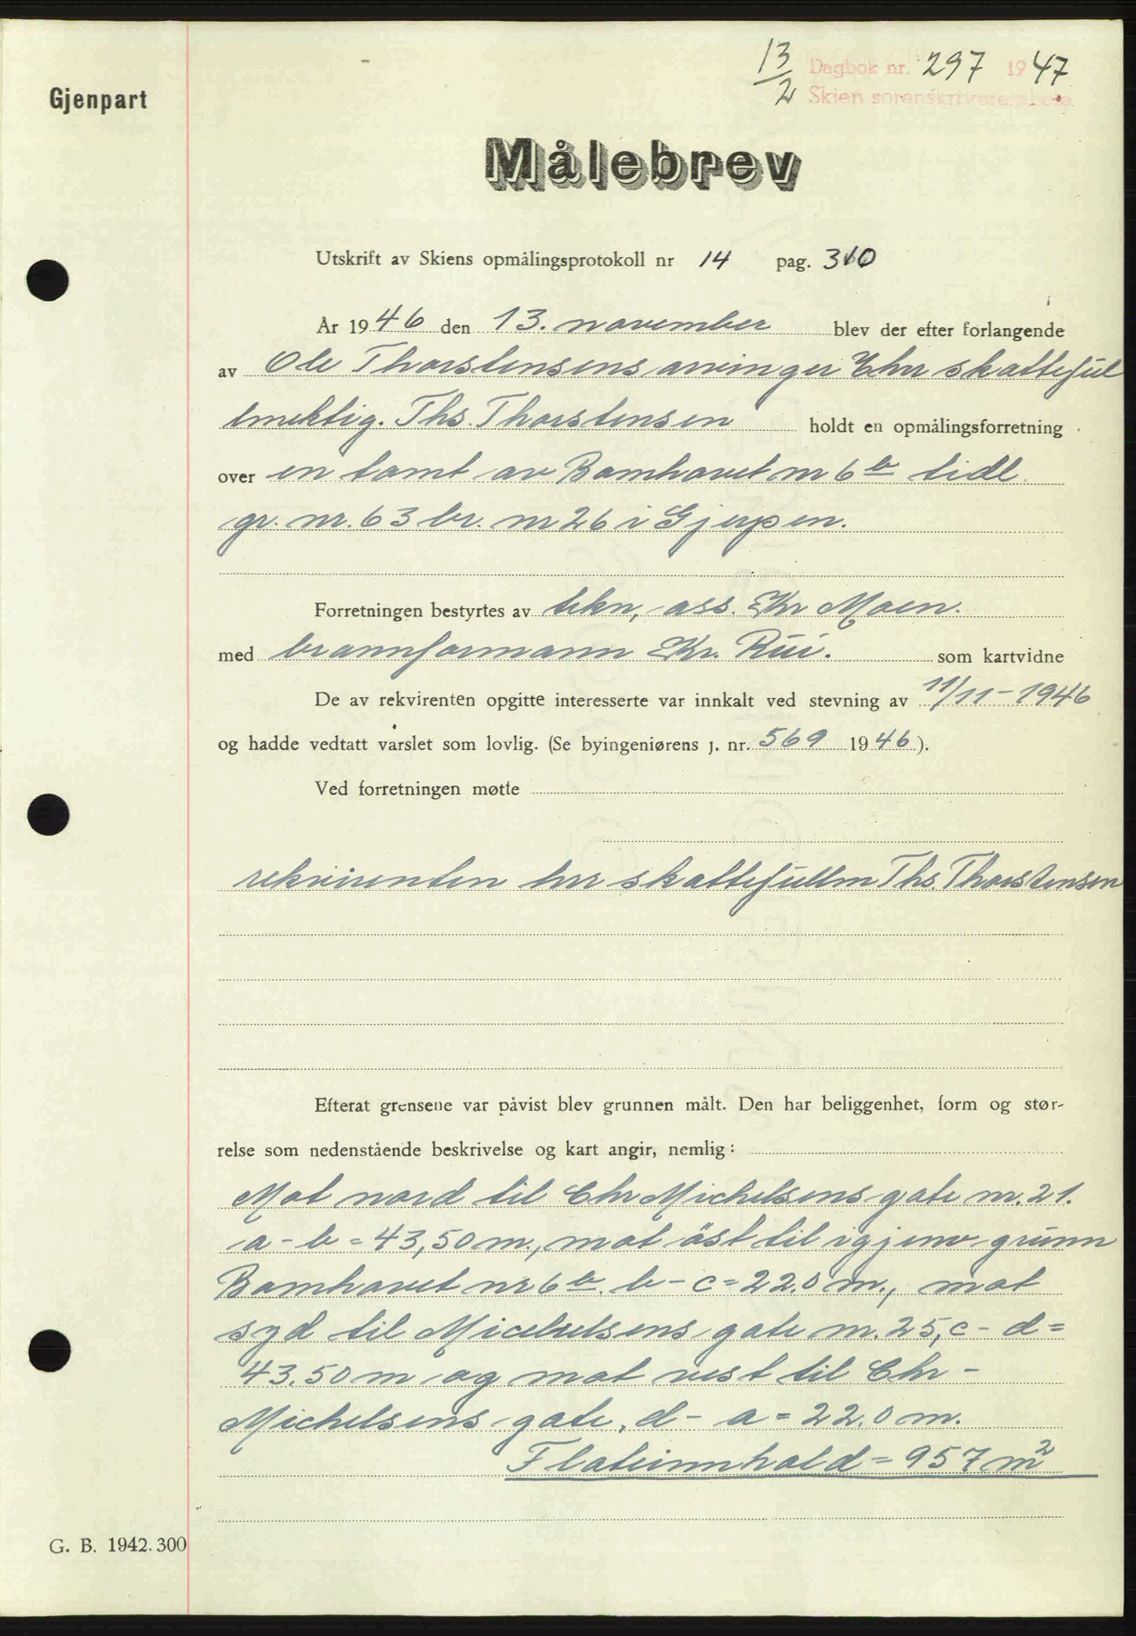 13/2 Dagbok nr. 297 1947
Skien sorenskriverembete
Gjenpart
Målebrev
Utskrift av Skiens opmålingsprotokoll nr 14 pag. 310
År 1946 den 13. november blev der efter forlangende
av Ole Thorstensens arvinger v/hr skatteful
lmektig. Ths. Thorstensen holdt en opmålingsforretning
over en tomt av Bamhavet nr 6b tidl.
gr. nr. 63 br. nr 26 i Gjerpen.
Forretningen bestyrtes av tekn. ass. Chr Moen.
med brannformann Kr. Rui. som kartvidne
De av rekvirenten opgitte interesserte var innkalt ved stevning av 11/11-1946
og hadde vedtatt varslet som lovlig. (Se byingeniørens j. nr. 569 1946).
Ved forretningen møtte
rekvirenten hr skattefullm Ths. Thorstensen
Efterat grensene var påvist blev grunnen målt. Den har beliggenhet, form og stør-
relse som nedenstående beskrivelse og kart angir, nemlig:
Mot nord til Chr Michelsens gate nr. 21.
a-b = 43,50 m., mot øst til igjenv. grunn
Bamhavet nr 6b. b-c = 22.0 m., mot
syd til Micelsens gate nr. 25, c-d =
43.50 m og mot vest til Chr-
Michelsens gate, d-a = 22.0 m.
Flateinnhold = 957 m2
G. B. 1942. 300